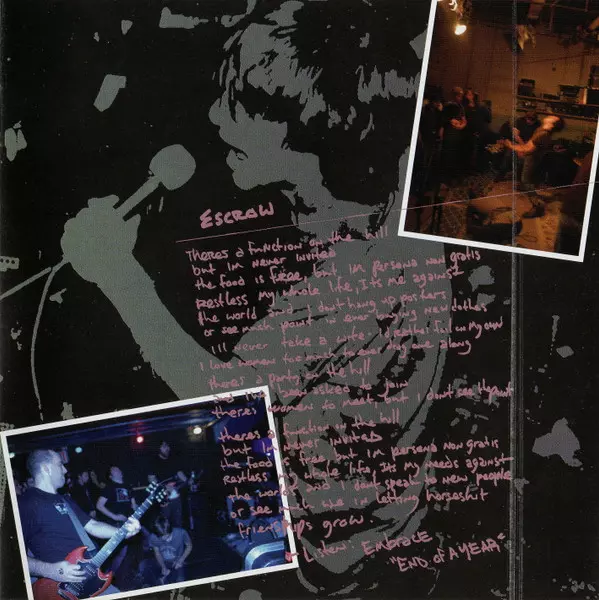 ESCROW
Theres a function on the hill
but Im never invited
the food is free, but, im persona non gratis
Restless my whole life, Its me against
the world and I dont hang up posters
or see much point in ever buying new clothes
I'll never take a wife. I'd rather fail on my own
I love women too much to ever drag one along
theres a party on the hill
and I've been asked to join
theres women to meet but I dont see the point
theres a function on the hill
but Im never invited
the food is free but im persona non gratis
Restless my whole life, Its my needs against
the world and I dont speak to new people
or see much use in letting horseshit
friendships grow.
Listen: EMBRACE
"END OF A YEAR"